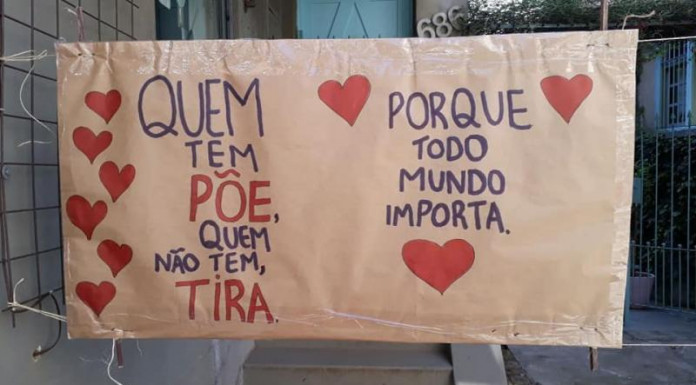 686
QUEM
TEM
PÕE,
QUEM
NÃO TEM,
TIRA.
PORQUE
TODO
MUNDO
IMPORTA.